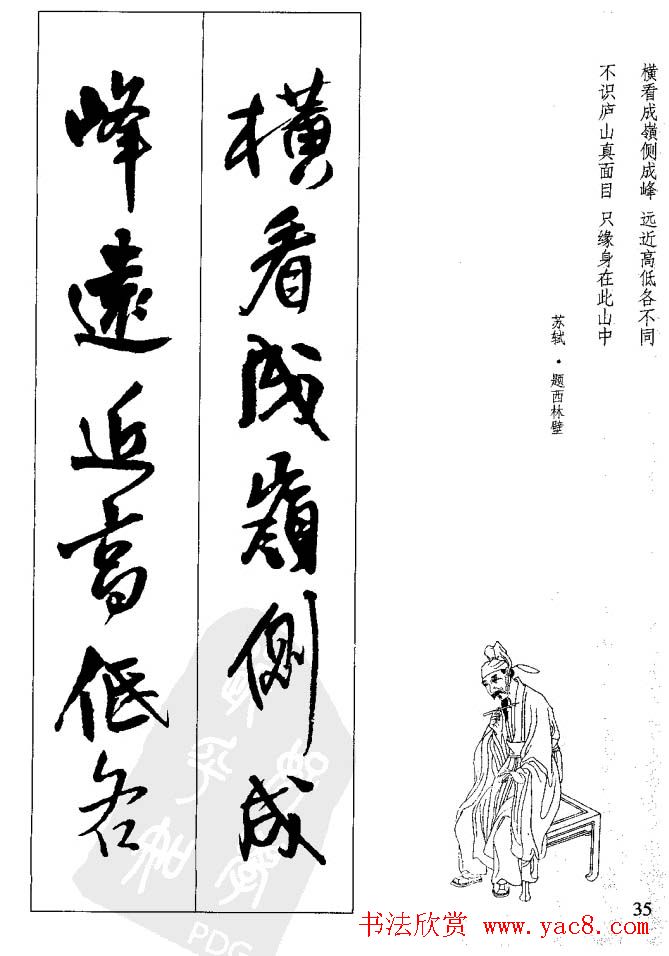 横看成嶺侧成峰 远近高低各不同
不识庐山真面目 只缘身在此山中
苏轼·题西林壁
橫看成嶺側成
峰遠近高低各
35
书法欣赏 www.yac8.com
PDG